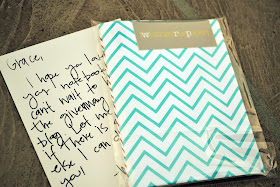 Grace,
I hope you lov
your notebook
can't wait to
the giveaway
blog. Let m
if there is
else I can
you!